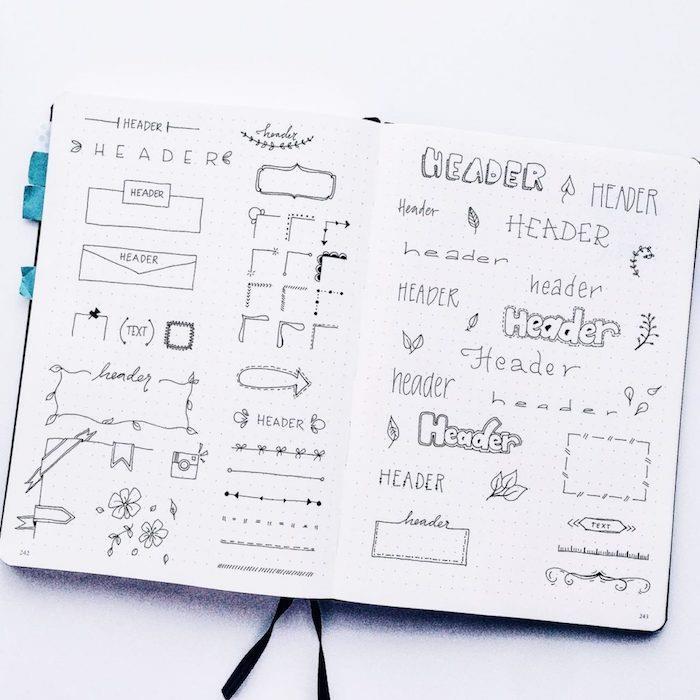 HEADER
header
HEADER
HEADER
HEADER
(TEXT)
header
HEADER
242
HEADER
HEADER
Header
HEADER
header
header
HEADER
Header
Header
header
header
Header
HEADER
header
TEXT
243